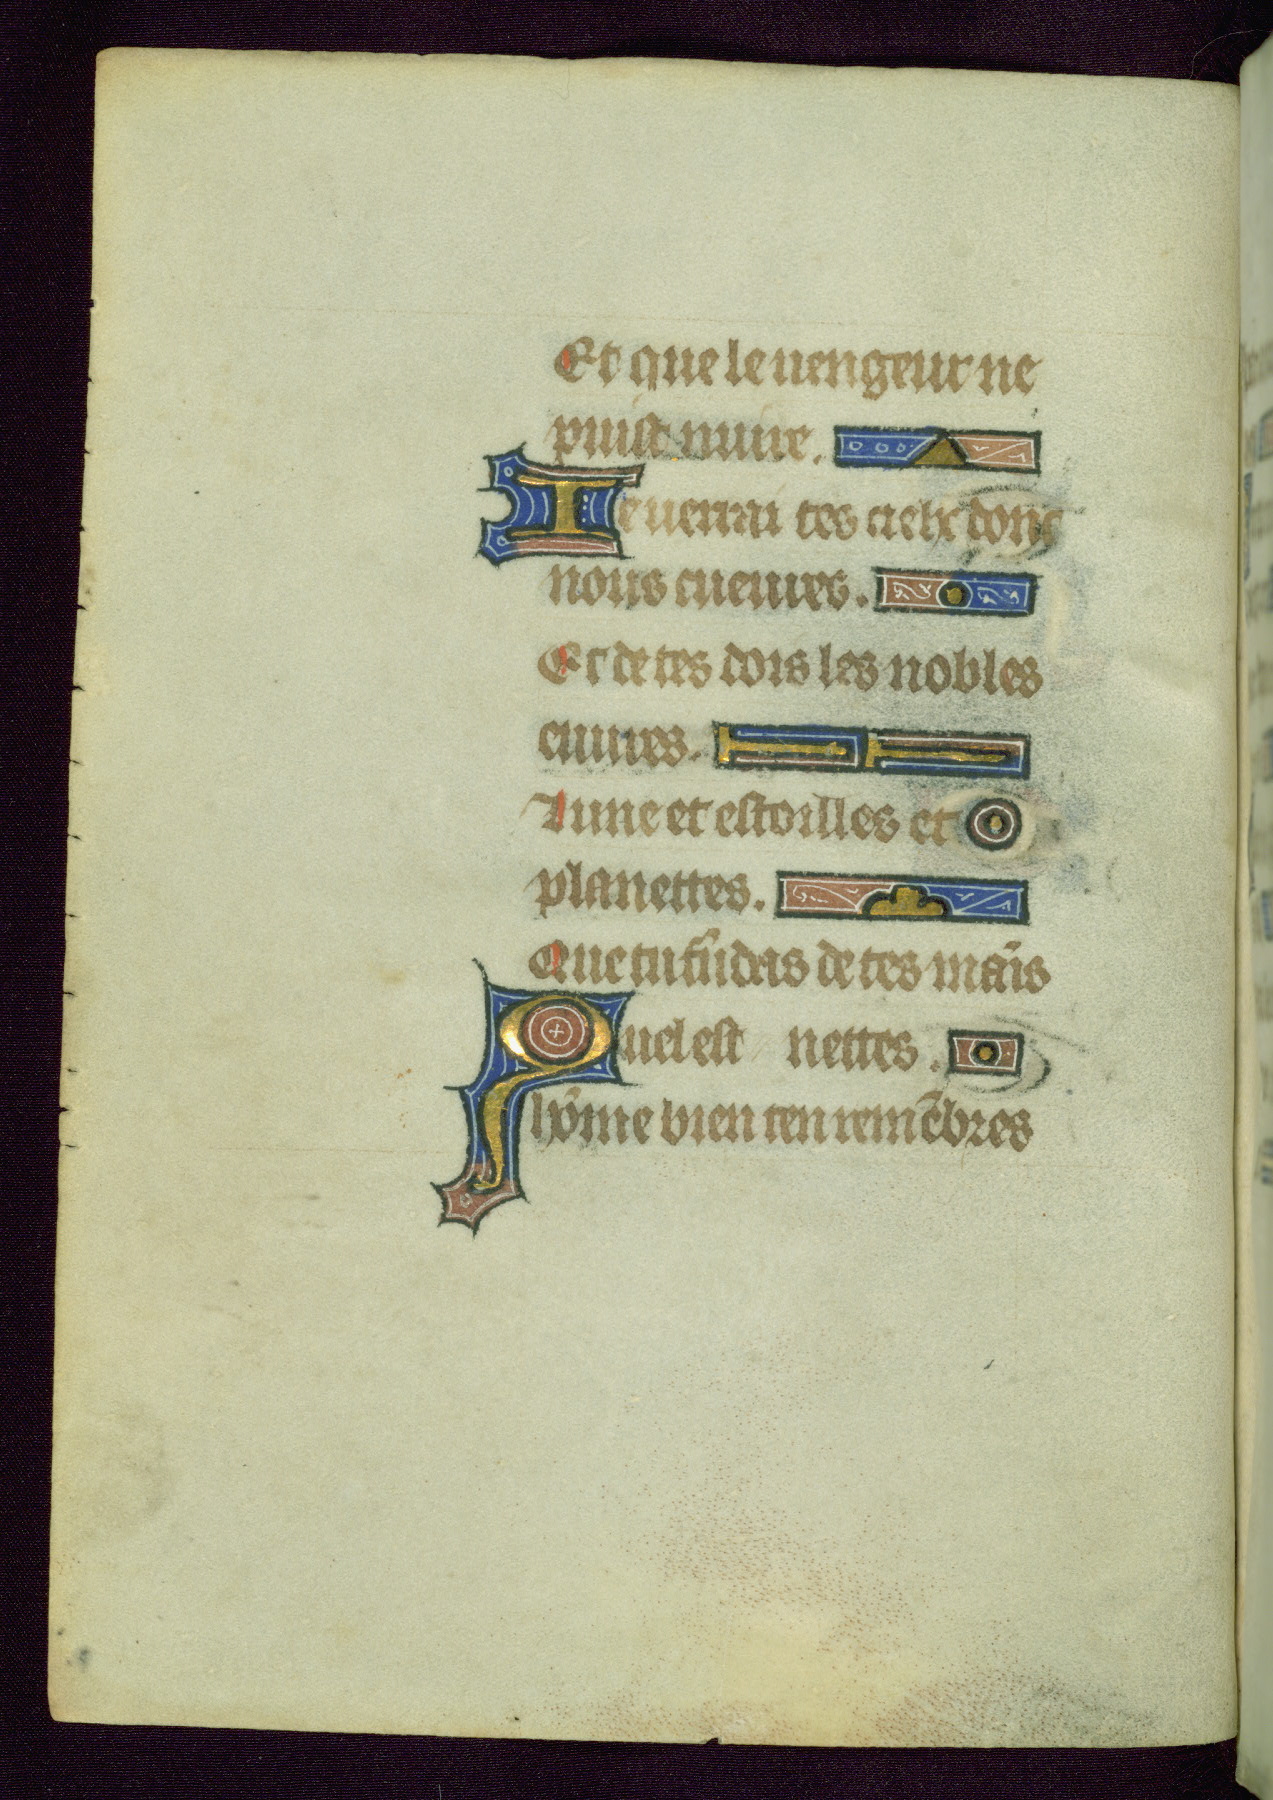 Et que le uengeur ne
puist nuire.
Ie uerrai tes cielx dont
nous cueuures.
Et de tes dois les nobles
euures.
Lune et estoilles et
planettes.
Que tu fūdas de tes maīs
Quel est nettes.
hōme bien ten remēbres